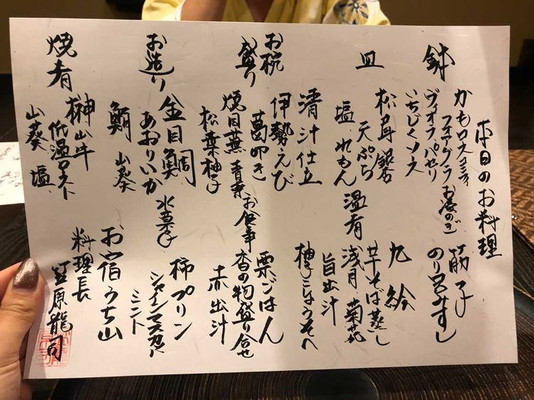 本日のお料理
鉢
かもロース
フォアグラ
お巻のせ
ヴィオラパセリ
いちじくソース
筋子
のり
すし
皿
松茸
天ぷら
塩 れもん
九絵
芋そば蒸し
温肴
浅月 菊花
旨出汁
お椀
清汁仕立
伊勢えび
葛叩き
柚子こしょうそへ
盛り
焼目蕪 青菜
松葉柚子
お食事
栗ごはん
香の物盛り合せ
赤出汁
お造り
金目鯛
あおりいか
鮪 山葵
水菓子
柿プリン
シャインマスカット
ミント
焼肴
榊山牛
低温ロースト
山葵 塩
お宿うち山
料理長
笠原龍司